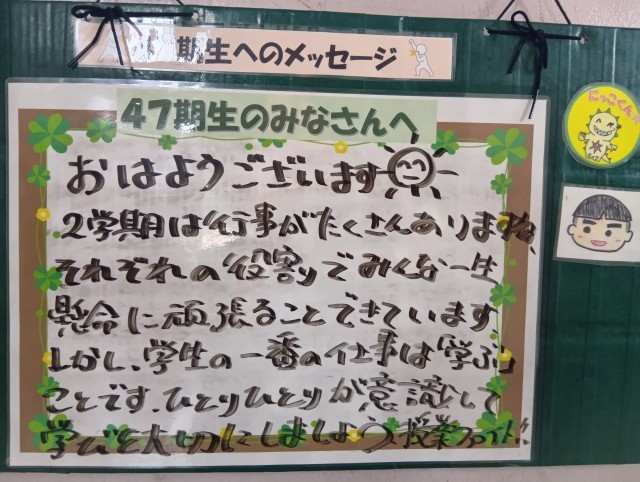 期生へのメッセージ
47期生のみなさんへ
おはようございます
2学期は行事がたくさんありますね、
それぞれの役割りでみんな一生
懸命に頑張ることできています
しかし、学生の一番の仕事は「学ぶ」
ことです、ひとりひとりが意識して
学びを大切にしましょう 授業ファイト!!
にっこくん